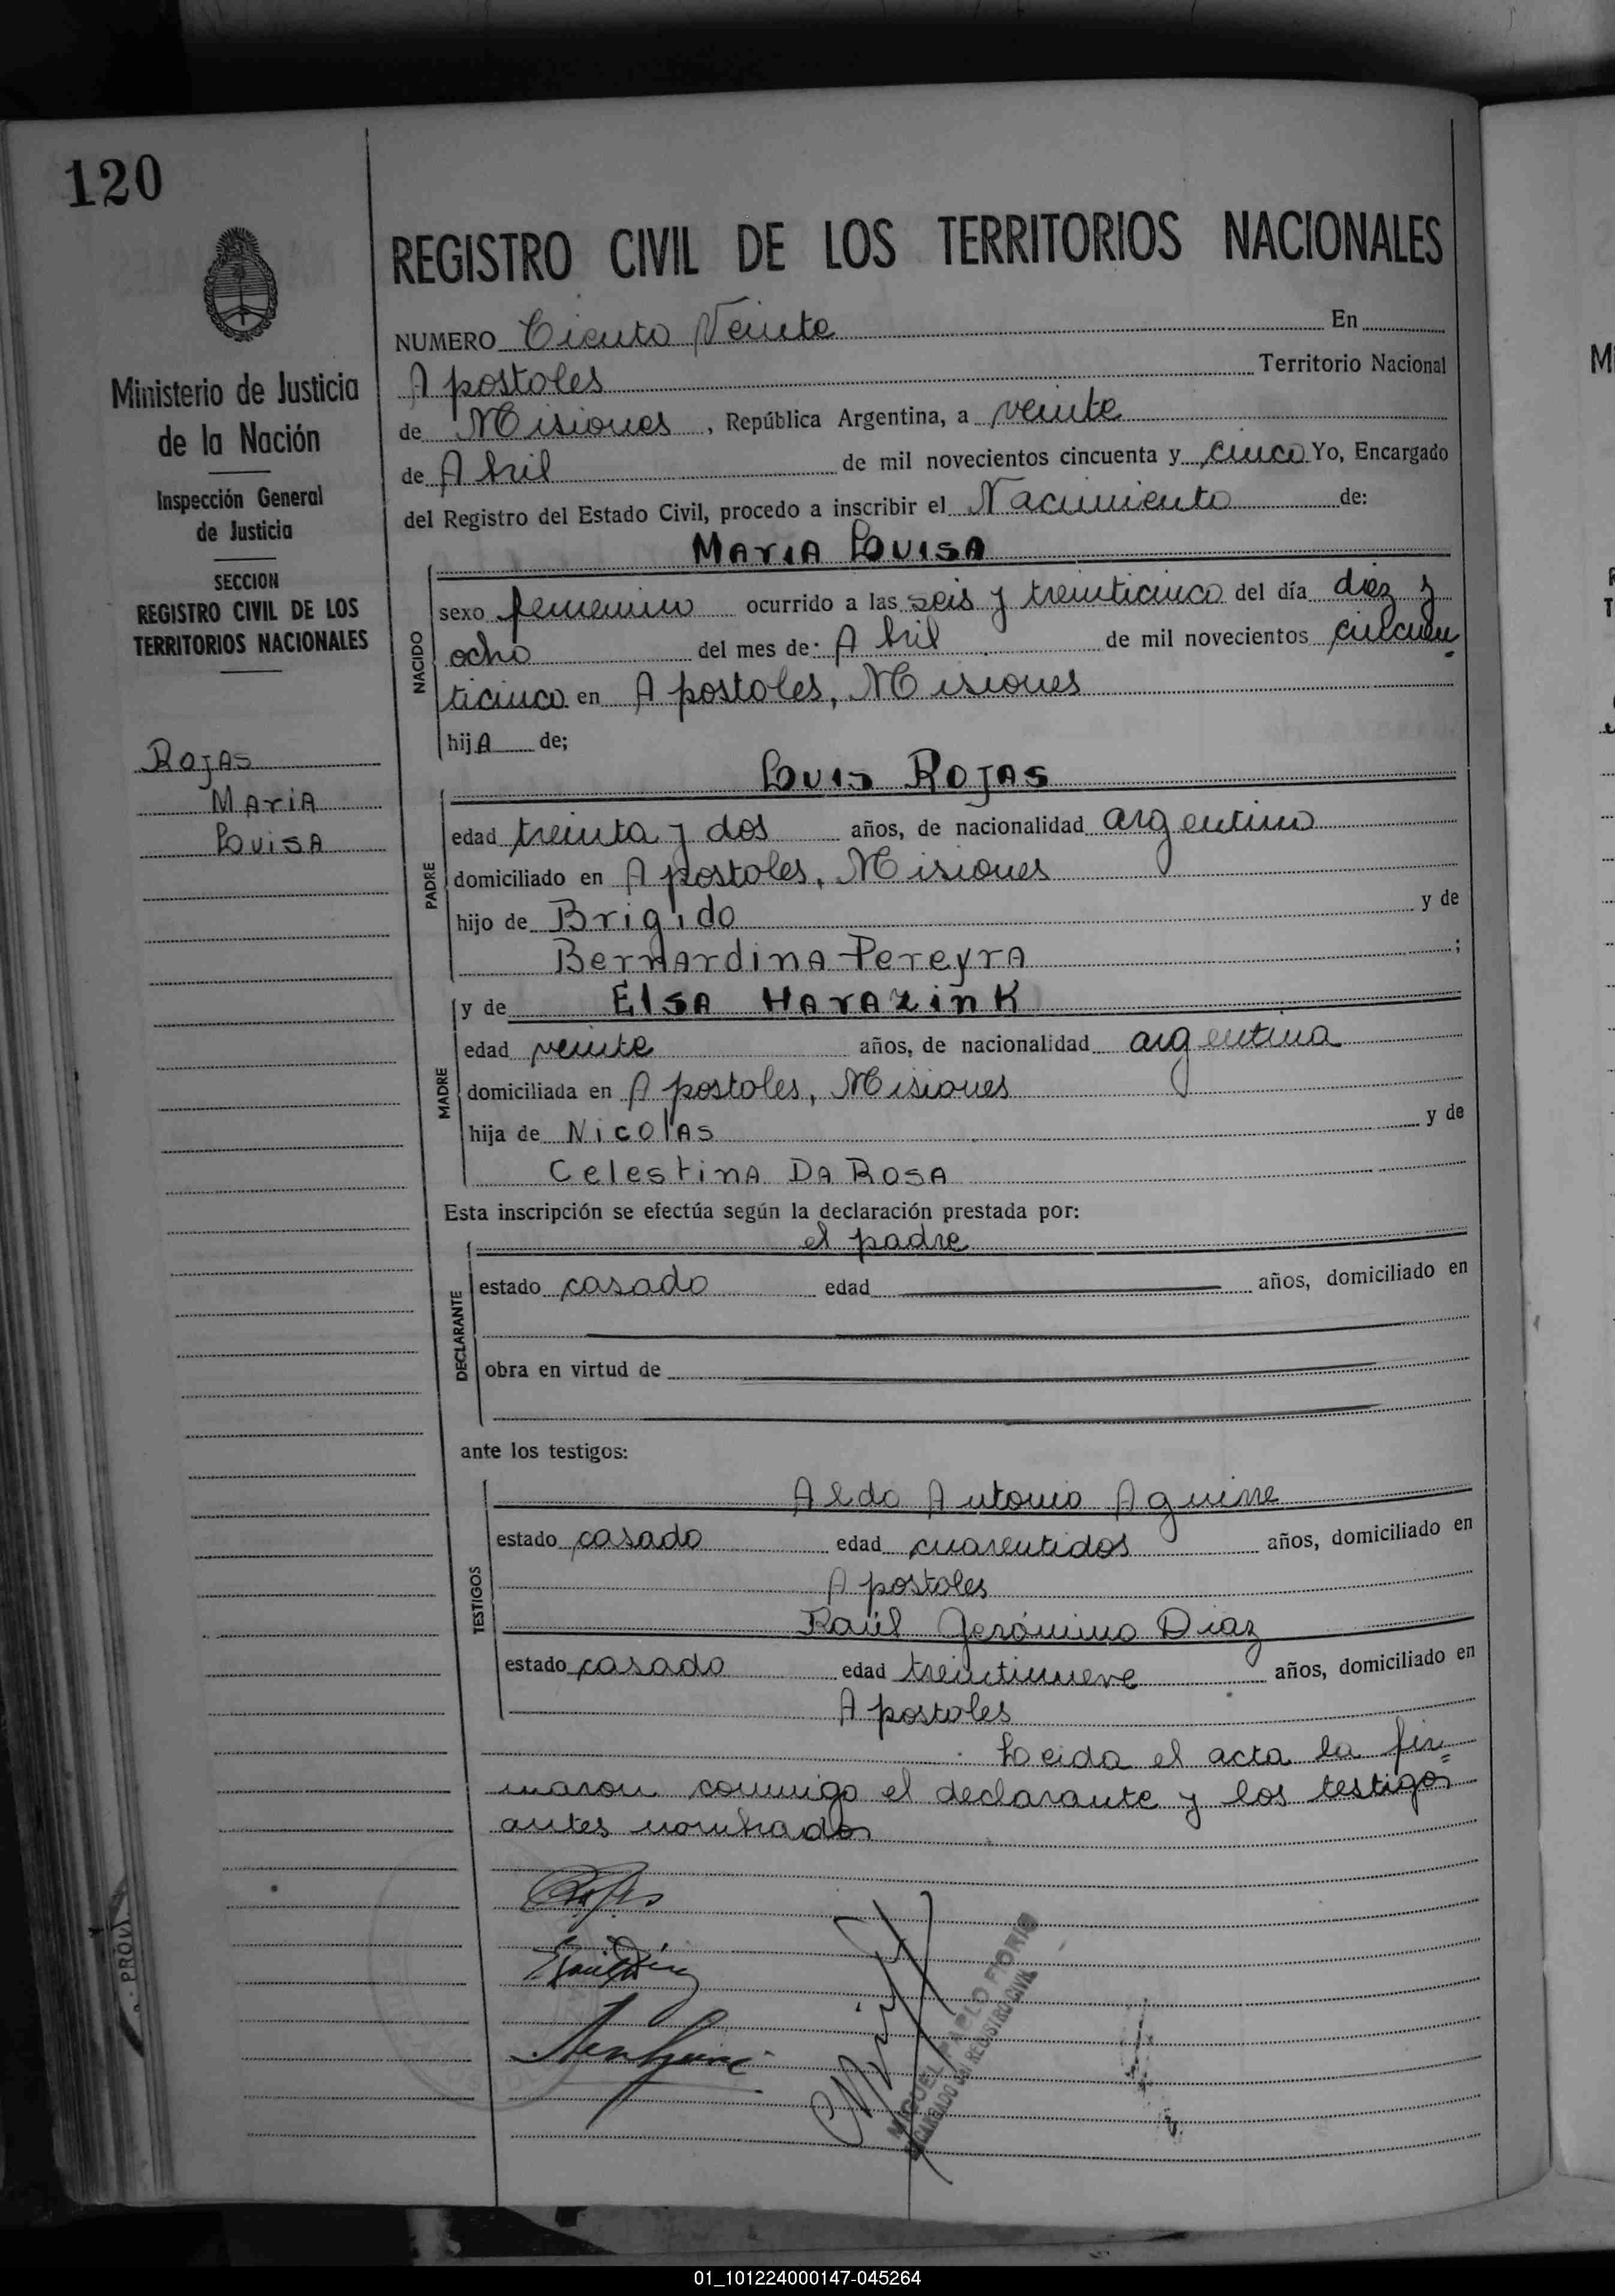 120
REGISTRO CIVIL DE LOS TERRITORIOS NACIONALES
Ministerio de Justicia
de la Nación
Inspección General
de Justicia
SECCION
REGISTRO CIVIL DE LOS
TERRITORIOS NACIONALES
Rojas
Maria
Luisa
NUMERO Ciento Veinte En
Apostoles Territorio Nacional
de Misiones, República Argentina, a veinte
de Abril de mil novecientos cincuenta y cinco Yo, Encargado
del Registro del Estado Civil, procedo a inscribir el Nacimiento de:
Maria Luisa
NACIDO
sexo femenino ocurrido a las seis y treinticinco del día diez y
ocho del mes de: Abril de mil novecientos cincuen
ticinco en Apostoles, Misiones
hija de;
Luis Rojas
PADRE
edad treinta y dos años, de nacionalidad argentino
domiciliado en Apostoles, Misiones
hijo de Brigido y de
Bernardina Pereyra ;
y de Elsa Harazink
MADRE
edad veinte años, de nacionalidad argentina
domiciliada en Apostoles, Misiones
hija de Nicolas y de
Celestina Da Rosa
Esta inscripción se efectúa según la declaración prestada por:
el padre
DECLARANTE
estado casado edad años, domiciliado en
obra en virtud de
ante los testigos:
Aldo Antonio Aguirre
TESTIGOS
estado casado edad cuarentidos años, domiciliado en
Apostoles
Raúl Gerónimo Diaz
estado casado edad treintinueve años, domiciliado en
Apostoles
Leida el acta la fir=
maron conmigo el declarante y los testigos
antes nombrados
MIGUEL PABLO FIORIO
ENCARGADO DEL REGISTRO CIVIL
PROVI
01_101224000147-045264